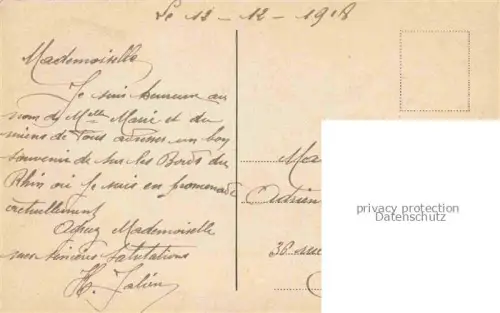 Le 12 - 12 - 1918
Mademoiselle
Je suis heureux au
nom de Melle Marie et du
miens de vous adresser un bon
souvenir de sur les Bords du
Rhin où Je suis en promenade
actuellement
Agréez Mademoiselle
mes sincères salutations
H. Julien
Ma
Adrien
38 rue
privacy protection
Datenschutz